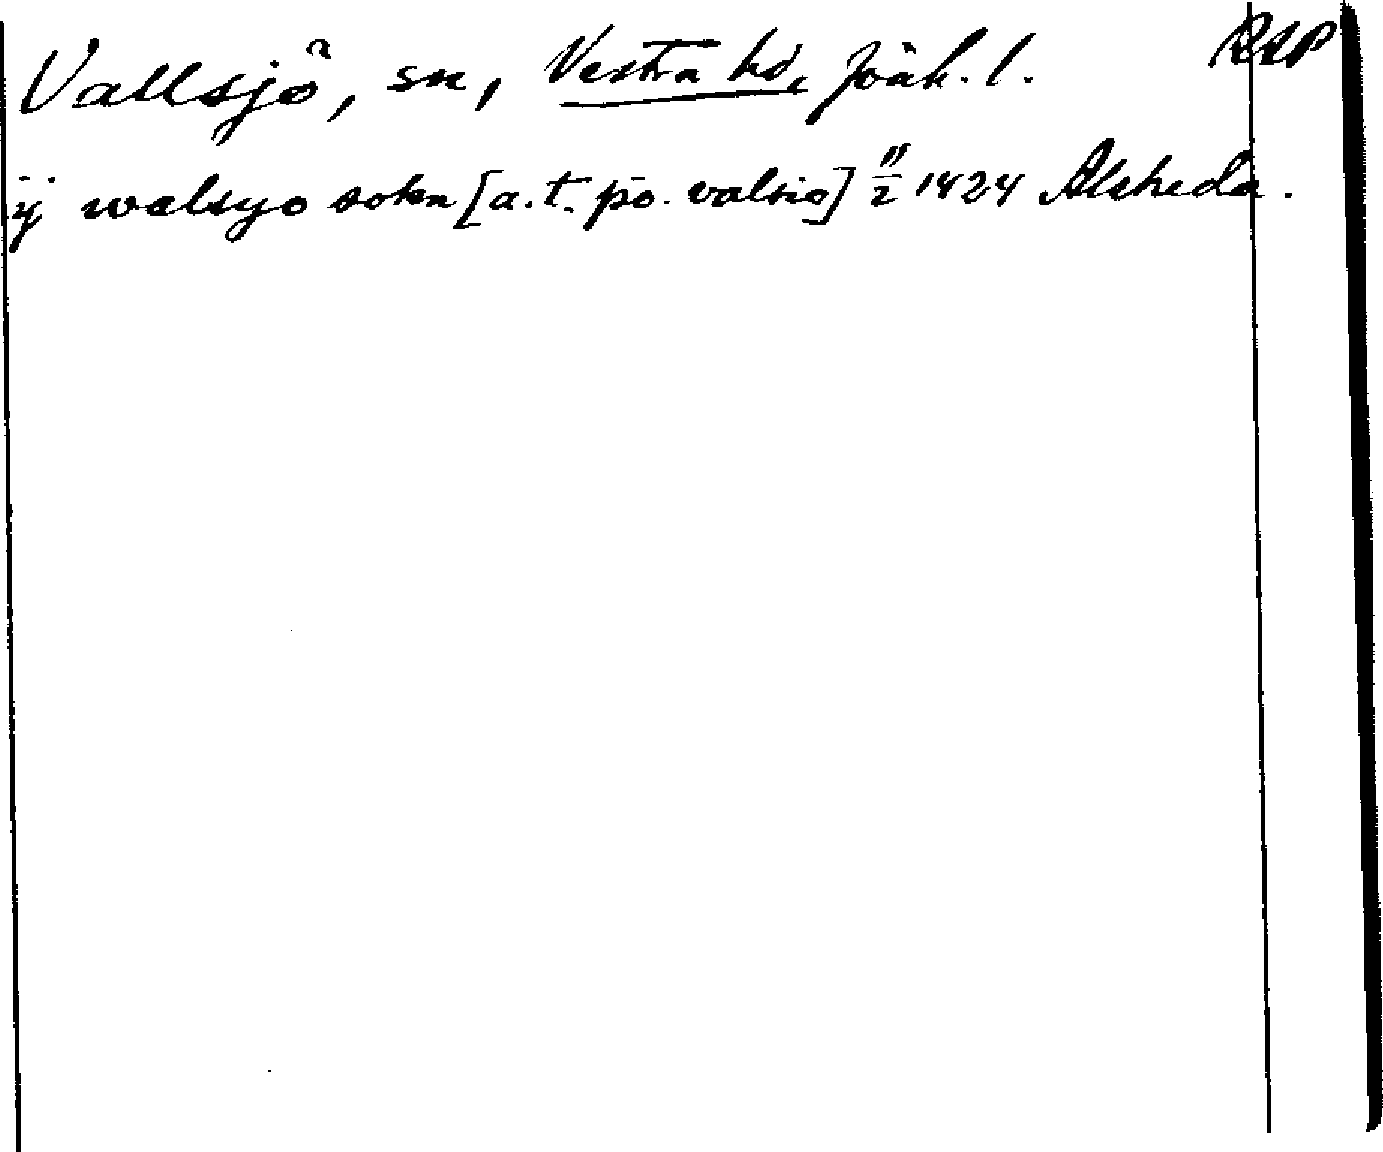 Vallsjö, sn, Vestra hd, Jönk. l. RAP
ij walsyo sokn [a. t. po. valsio] 11/2 1424 Alsheda.